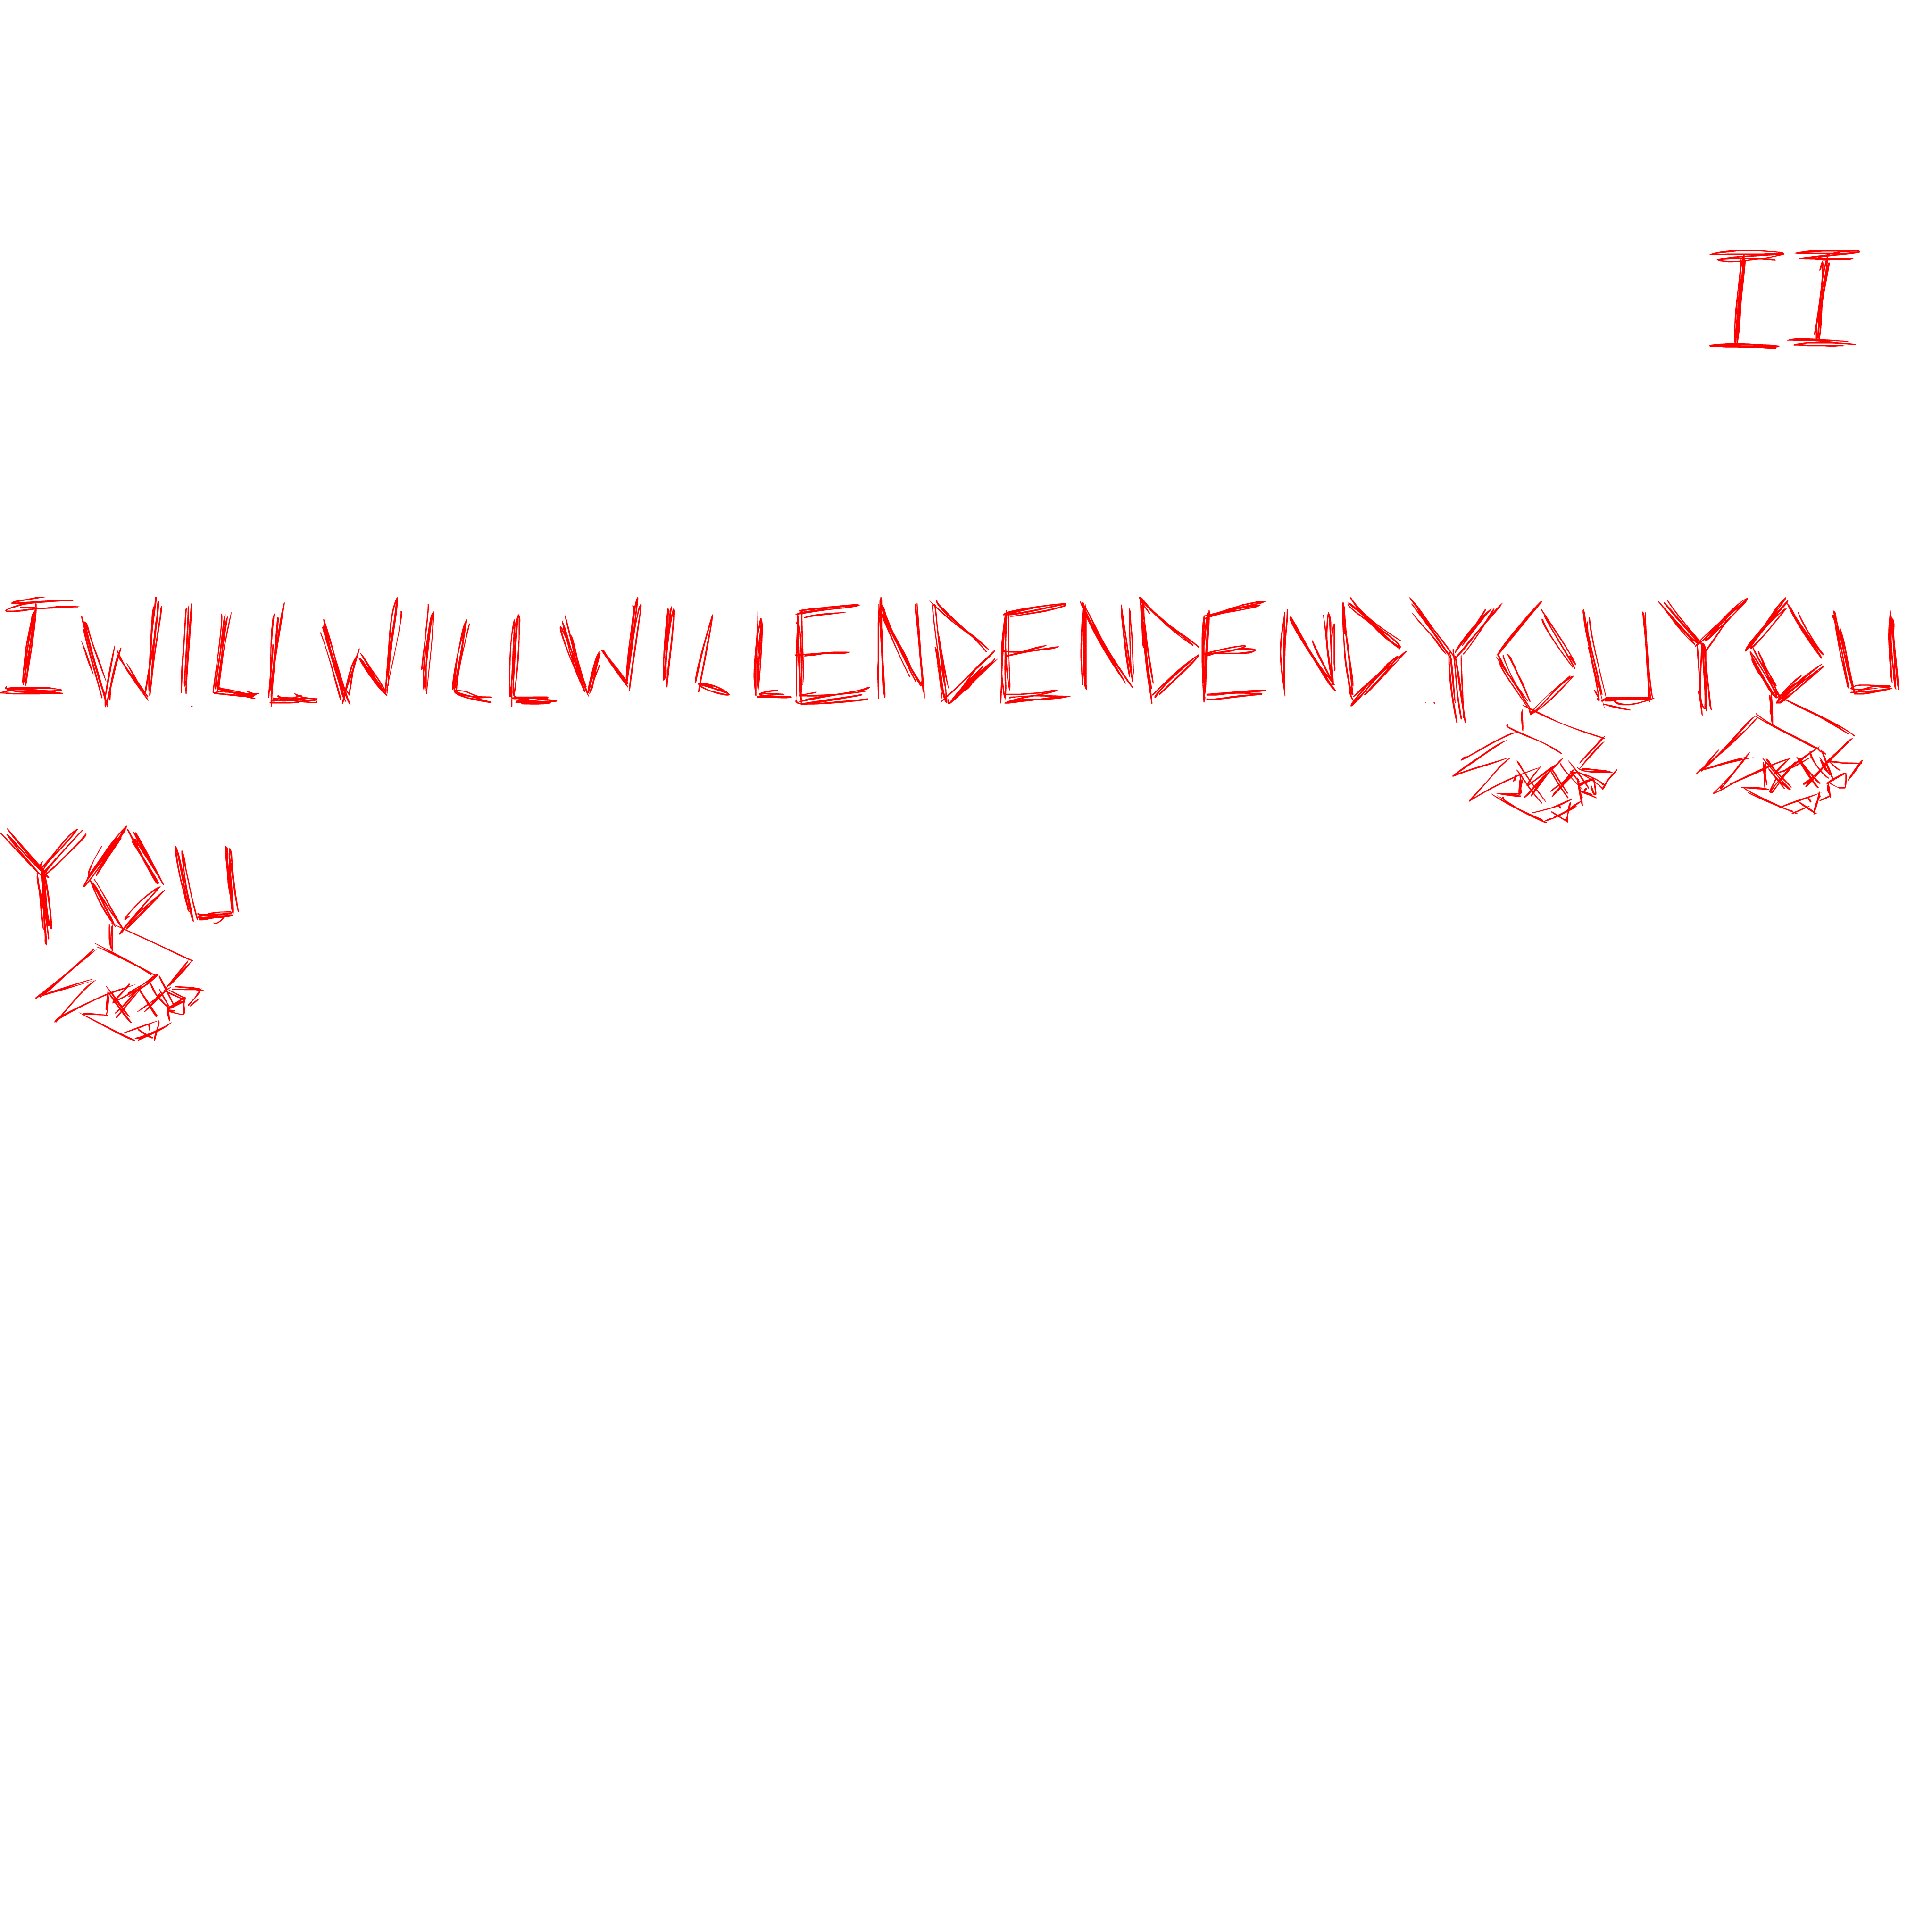 II
I WILL WILL WILL END END END YOU YOU
YOU